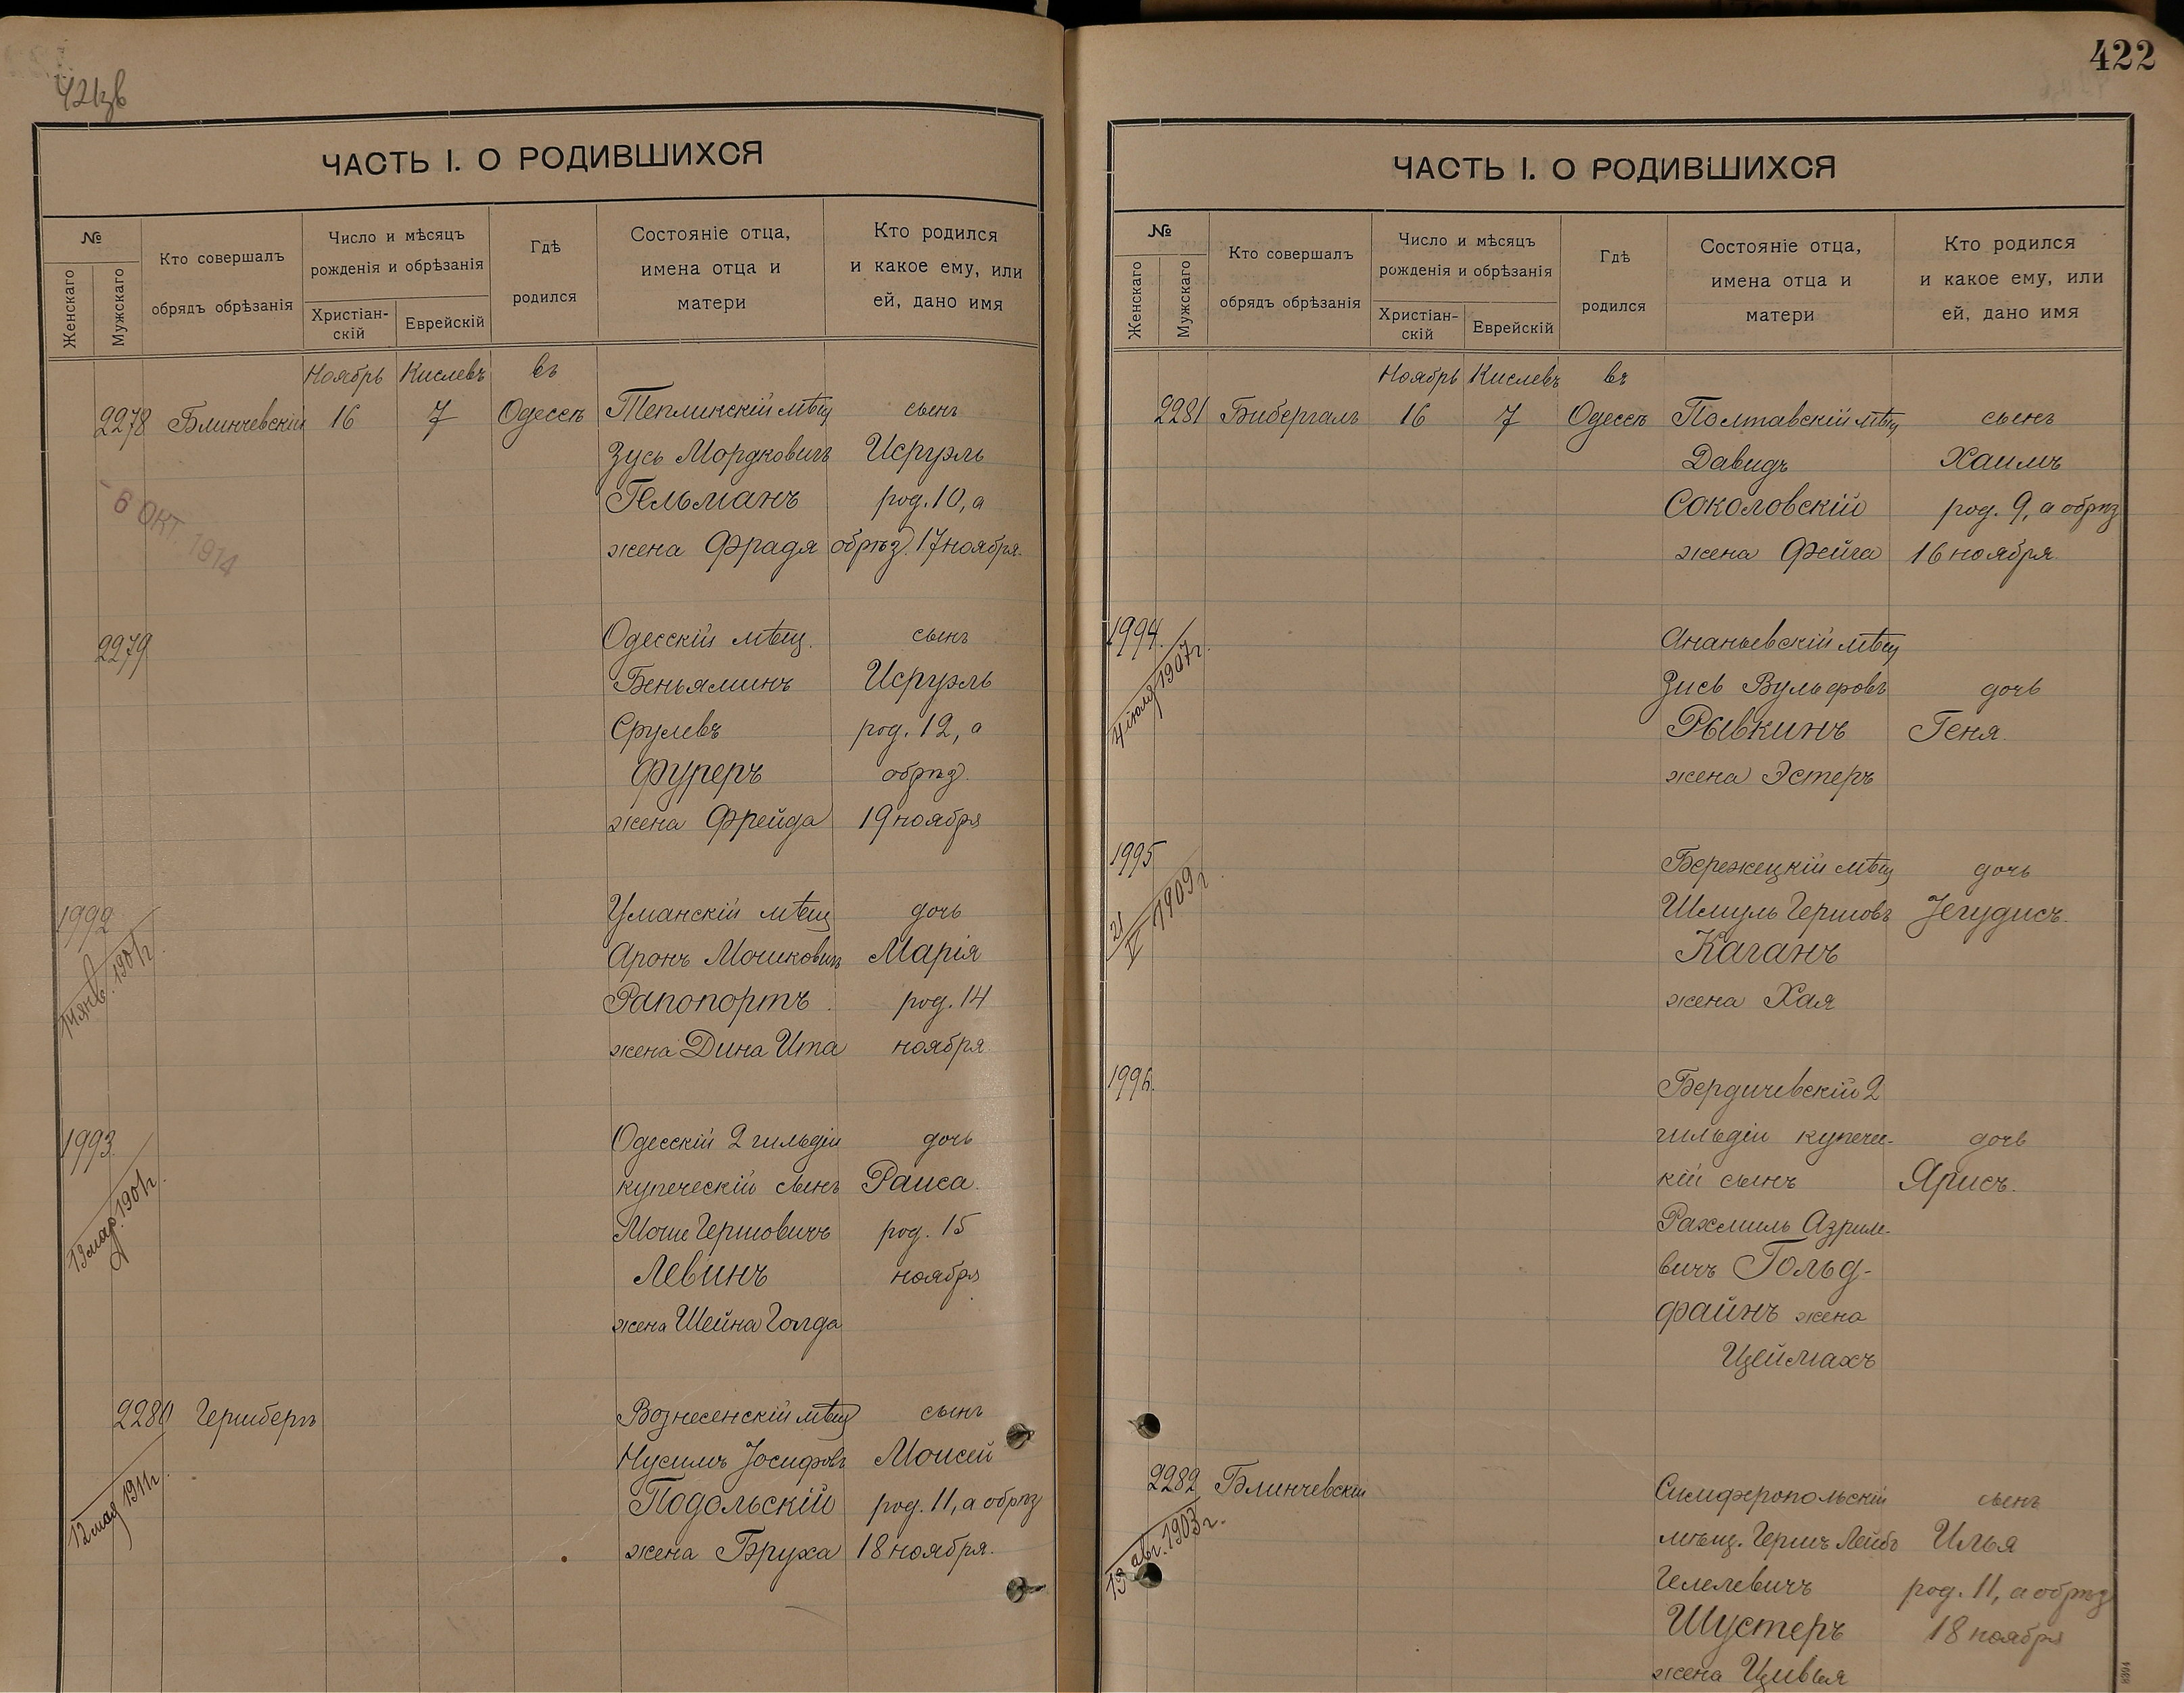 421зв
ЧАСТЬ I. О РОДИВШИХСЯ
№
Женскаго
Мужскаго
Кто совершалъ
обрядъ обрѣзанія
Число и мѣсяцъ
рожденія и обрѣзанія
Христіан-
скій
Еврейскій
Гдѣ
родился
Состояніе отца,
имена отца и
матери
Кто родился
и какое ему, или
ей, дано имя
Ноябрь Кислевъ въ
2278 Блинчевскій 16 7 Одессѣ Теплинскій мѣщ сынъ
Зусь Мордковичъ Исруэль
Гельманъ род. 10, а
жена Фрадя обрѣз. 17 ноября.
6 ОКТ. 1914
2279 Одесскій мѣщ. сынъ
Беньяминъ Исруэль
Срулевъ род. 12, а
Фуреръ обрѣз.
жена Фрейда 19 ноября
1992 Уманскій мѣщ дочь
Аронъ Мошковичъ Марія
Рапопортъ род. 14
жена Дина Ита ноября
14 янв. 1901г.
1993 Одесскій 2 гильдіи дочь
купеческій сынъ Раиса.
Моше Гершовичъ род. 15
Левинъ ноября
жена Шейна Голда
13 мар. 1901г.
2280 Гершбергъ Вознесенскій мѣщ сынъ
Нусимъ Іосифовъ Моисей
Подольскій род. 11, а обрѣз
жена Бруха 18 ноября.
12 мая 1911г.
422
ЧАСТЬ I. О РОДИВШИХСЯ
№
Женскаго
Мужскаго
Кто совершалъ
обрядъ обрѣзанія
Число и мѣсяцъ
рожденія и обрѣзанія
Христіан-
скій
Еврейскій
Гдѣ
родился
Состояніе отца,
имена отца и
матери
Кто родился
и какое ему, или
ей, дано имя
Ноябрь Кислевъ въ
2281 Бибергалъ 16 7 Одессѣ Полтавскій мѣщ сынъ
Давидъ Хаимъ
Соколовскій род. 9, а обрѣз
жена Фейга 16 ноября
1994. Ананьевскій мѣщ
Зись Вульфовъ дочь
Рывкинъ Геня.
жена Эстеръ
4 июля 1907г.
1995 Бережецкій мѣщ дочь
Шмуль Гершовъ Јегудисъ.
Каганъ
жена Хая
21/VI 1909г.
1996. Бердичевскій 2
гильдіи купечес-
кій сынъ дочь
Ярисъ.
Рахмиль Азриле-
вичъ Гольд-
файнъ жена
Цеймахъ
2282 Блинчевскій Симферопольскій сынъ
мѣщ. Гершъ Лейбъ Илья
Гелелевичъ род. 11, а обрѣз
Шустеръ 18 ноября
жена Цивья
13 авг. 1903г.